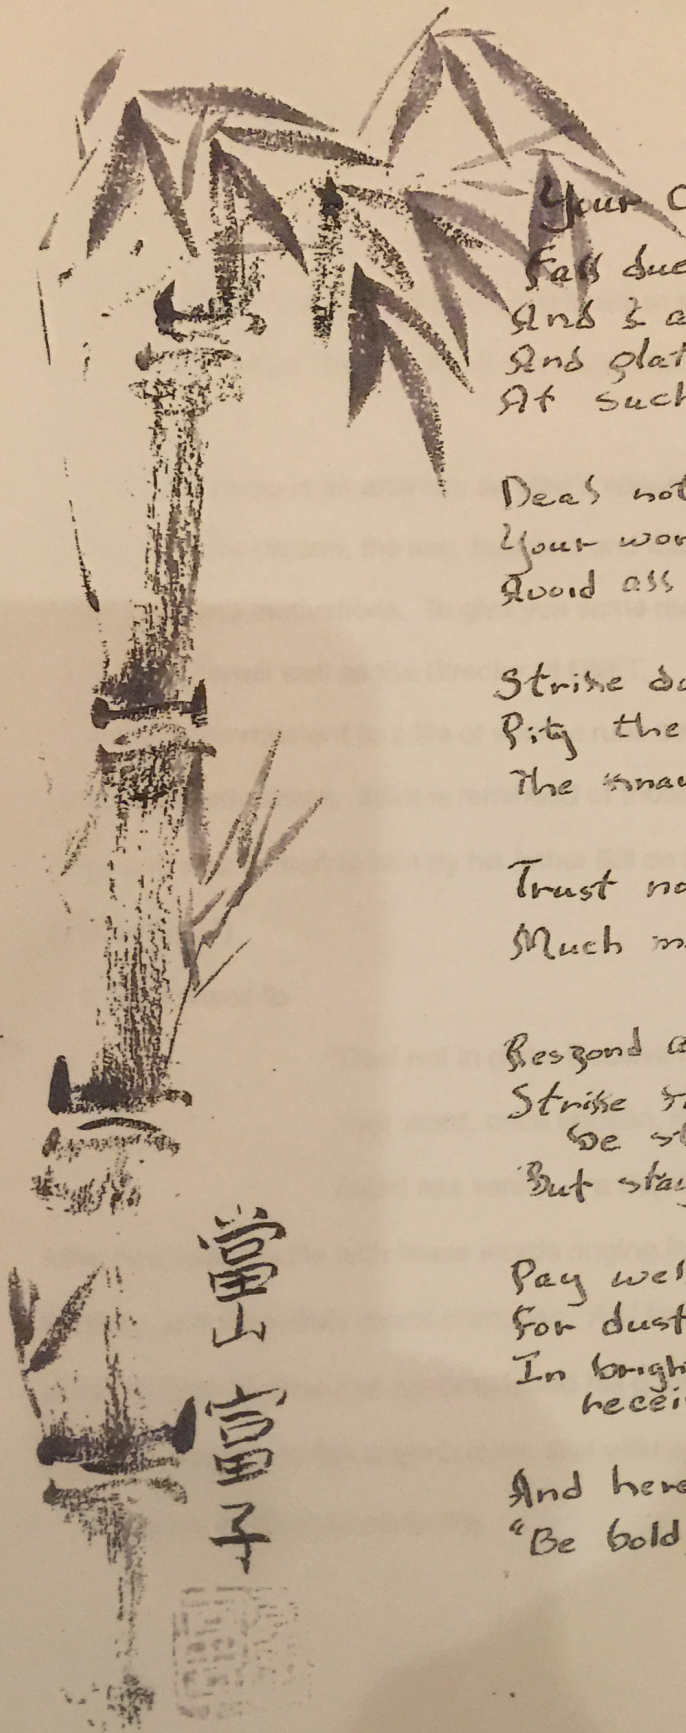 Your
Fall due
And I a
And glat
At such
Deal not
Your wor
Avoid all
Strike do
Pity the
The knav
Trust no
Much m
Respond a
Strike
be st
But stay
Pay wel
For dust
In brigh
recei
And here
"Be bold,
當山 富子